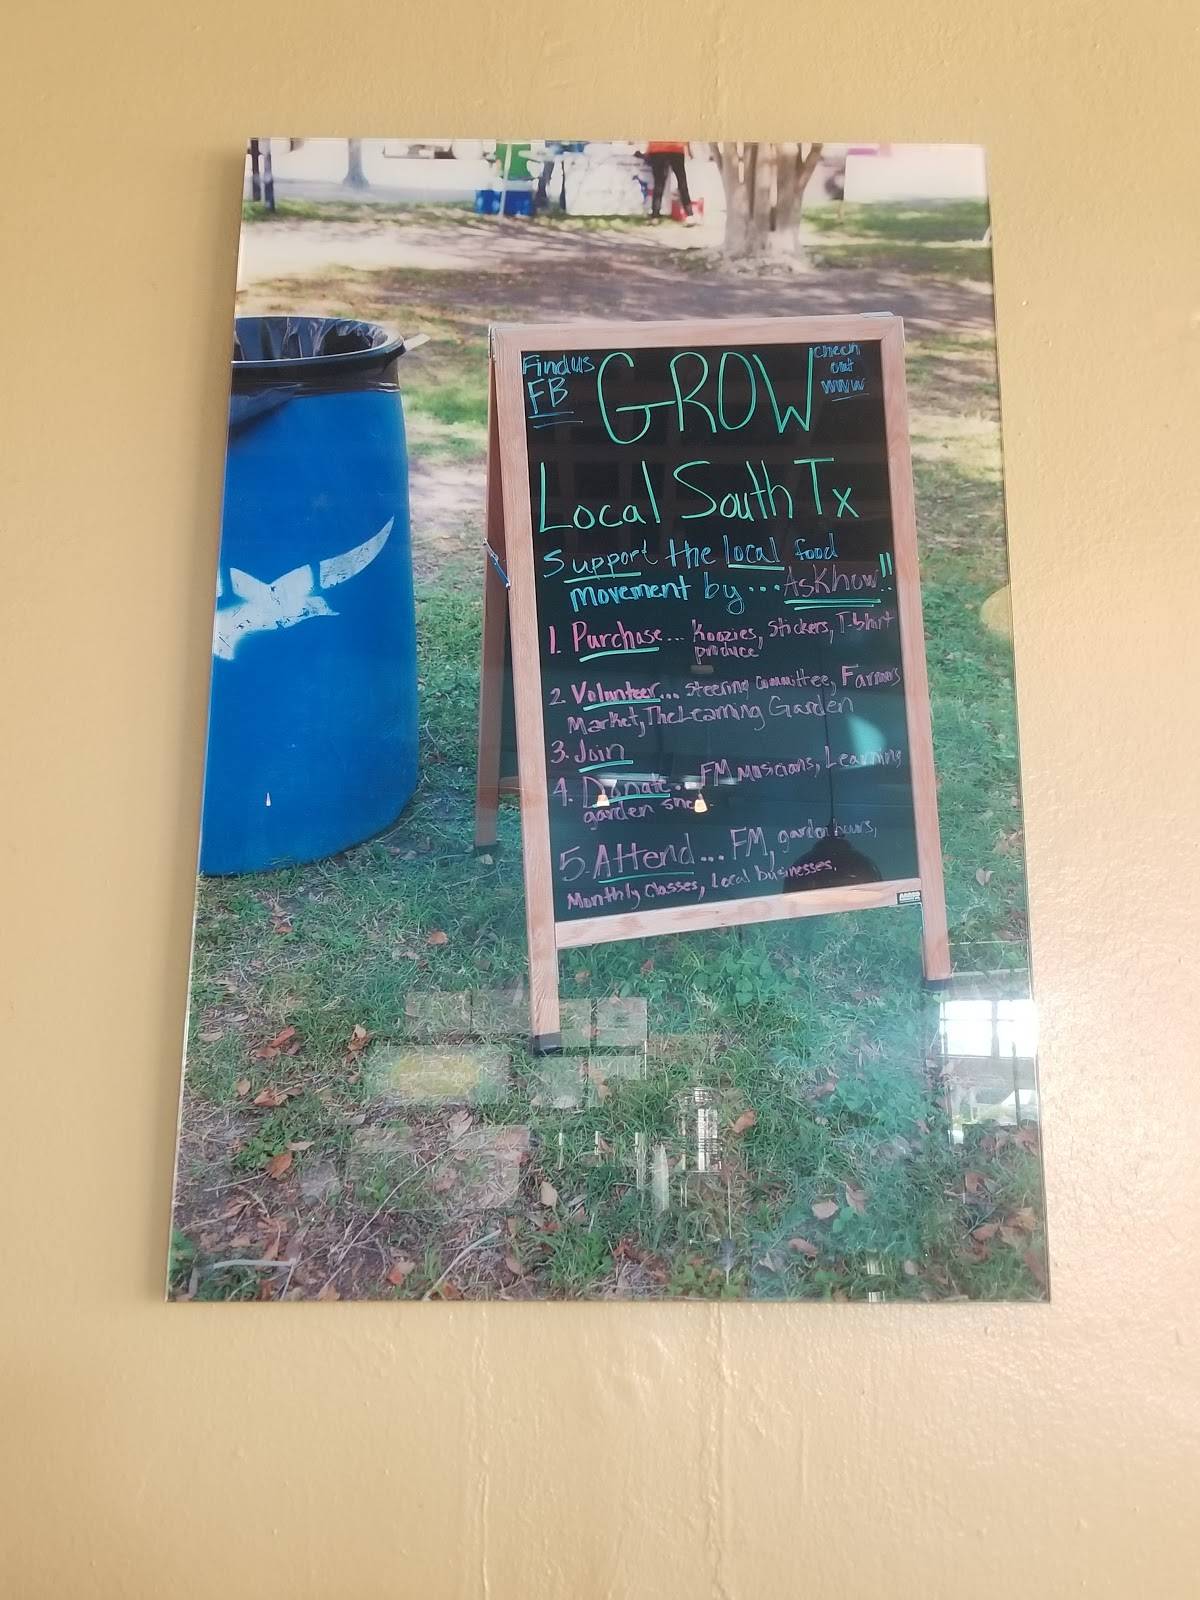 Find us
FB
GROW
check
out
www
Local South Tx
Support the local food
movement by... Ask how!!
1. Purchase... Koozies, Stickers, T-Shirt
produce
2. Volunteer... Steering Committee, Farmers
Market, The Learning Garden
3. Join
4. Donate.. FM musicians, Learning
garden
5. Attend... FM, garden hours,
Monthly classes, Local businesses.